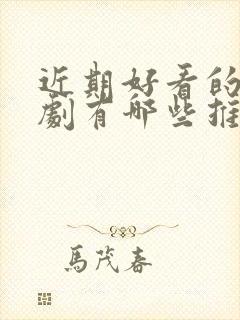 近期好看的
劇有哪些推
馬茂春